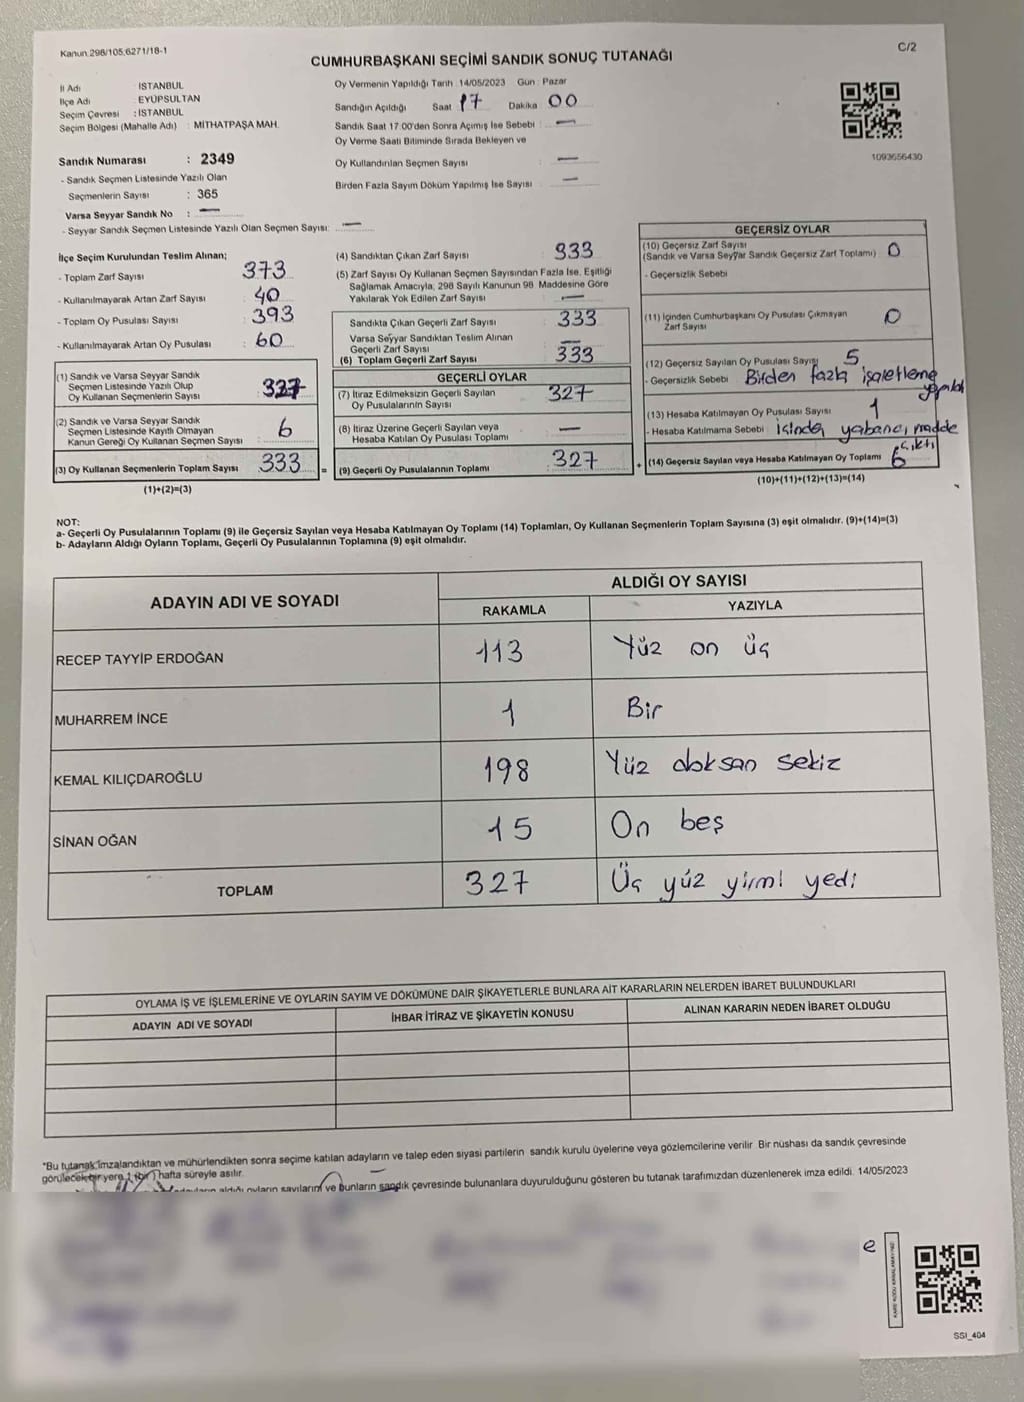 Kanun.298/105;6271/18-1
C/2
CUMHURBAŞKANI SEÇİMİ SANDIK SONUÇ TUTANAĞI
İl Adı : İSTANBUL
İlçe Adı : EYÜPSULTAN
Seçim Çevresi : İSTANBUL
Seçim Bölgesi (Mahalle Adı) : MİTHATPAŞA MAH.
Oy Vermenin Yapıldığı Tarih : 14/05/2023 Gün : Pazar
Sandığın Açıldığı Saat 17 Dakika 00
Sandık Saat 17:00'den Sonra Açımış İse Sebebi : —
Oy Verme Saati Bitiminde Sırada Bekleyen ve
Oy Kullandırılan Seçmen Sayısı : —
Birden Fazla Sayım Döküm Yapılmış İse Sayısı : —
1093656430
Sandık Numarası : 2349
- Sandık Seçmen Listesinde Yazılı Olan
Seçmenlerin Sayısı : 365
Varsa Seyyar Sandık No : —
- Seyyar Sandık Seçmen Listesinde Yazılı Olan Seçmen Sayısı: —
İlçe Seçim Kurulundan Teslim Alınan;
- Toplam Zarf Sayısı : 373
- Kullanılmayarak Artan Zarf Sayısı : 40
- Toplam Oy Pusulası Sayısı : 393
- Kullanılmayarak Artan Oy Pusulası : 60
(1) Sandık ve Varsa Seyyar Sandık
Seçmen Listesinde Yazılı Olup
Oy Kullanan Seçmenlerin Sayısı : 327
(2) Sandık ve Varsa Seyyar Sandık
Seçmen Listesinde Kayıtlı Olmayan
Kanun Gereği Oy Kullanan Seçmen Sayısı : 6
(3) Oy Kullanan Seçmenlerin Toplam Sayısı 333
(1)+(2)=(3)
(4) Sandıktan Çıkan Zarf Sayısı : 333
(5) Zarf Sayısı Oy Kullanan Seçmen Sayısından Fazla İse, Eşitliği
Sağlamak Amacıyla, 298 Sayılı Kanunun 98. Maddesine Göre
Yakılarak Yok Edilen Zarf Sayısı : —
Sandıkta Çıkan Geçerli Zarf Sayısı : 333
Varsa Seyyar Sandıktan Teslim Alınan
Geçerli Zarf Sayısı : —
(6) Toplam Geçerli Zarf Sayısı : 333
GEÇERLİ OYLAR
(7) İtiraz Edilmeksizin Geçerli Sayılan
Oy Pusulalarının Sayısı : 327
(8) İtiraz Üzerine Geçerli Sayılan veya
Hesaba Katılan Oy Pusulası Toplamı : —
= (9) Geçerli Oy Pusulalarının Toplamı : 327
GEÇERSİZ OYLAR
(10) Geçersiz Zarf Sayısı
(Sandık ve Varsa Seyyar Sandık Geçersiz Zarf Toplamı) : 0
- Geçersizlik Sebebi
(11) İçinden Cumhurbaşkanı Oy Pusulası Çıkmayan
Zarf Sayısı : 0
(12) Geçersiz Sayılan Oy Pusulası Sayısı 5
- Geçersizlik Sebebi Birden fazla işaretleme
yapıldı
(13) Hesaba Katılmayan Oy Pusulası Sayısı 1
- Hesaba Katılmama Sebebi : içinden yabancı madde
çıktı
+ (14) Geçersiz Sayılan veya Hesaba Katılmayan Oy Toplamı 6
(10)+(11)+(12)+(13)=(14)
NOT:
a- Geçerli Oy Pusulalarının Toplamı (9) ile Geçersiz Sayılan veya Hesaba Katılmayan Oy Toplamı (14) Toplamları, Oy Kullanan Seçmenlerin Toplam Sayısına (3) eşit olmalıdır. (9)+(14)=(3)
b- Adayların Aldığı Oyların Toplamı, Geçerli Oy Pusulalarının Toplamına (9) eşit olmalıdır.
ADAYIN ADI VE SOYADI
ALDIĞI OY SAYISI
RAKAMLA YAZIYLA
RECEP TAYYİP ERDOĞAN 113 Yüz on üç
MUHARREM İNCE 1 Bir
KEMAL KILIÇDAROĞLU 198 Yüz doksan sekiz
SİNAN OĞAN 15 On beş
TOPLAM 327 Üç yüz yirmi yedi
OYLAMA İŞ VE İŞLEMLERİNE VE OYLARIN SAYIM VE DÖKÜMÜNE DAİR ŞİKAYETLERLE BUNLARA AİT KARARLARIN NELERDEN İBARET BULUNDUKLARI
ADAYIN ADI VE SOYADI İHBAR İTİRAZ VE ŞİKAYETİN KONUSU ALINAN KARARIN NEDEN İBARET OLDUĞU
*Bu tutanak imzalandıktan ve mühürlendikten sonra seçime katılan adayların ve talep eden siyasi partilerin sandık kurulu üyelerine veya gözlemcilerine verilir. Bir nüshası da sandık çevresinde
görülecek bir yere 1 (bir) hafta süreyle asılır.
aldığı oyların sayılarını ve bunların sandık çevresinde bulunanlara duyurulduğunu gösteren bu tutanak tarafımızdan düzenlenerek imza edildi. 14/05/2023
e
SSI_404